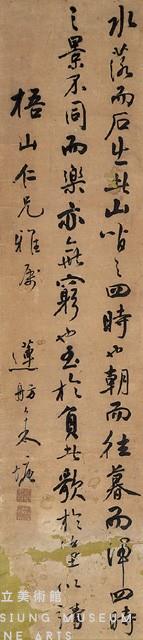 水落而石出者山間之四時也朝而往暮而歸四時
之景不同而樂亦無窮也至於負者歌於塗行
梧山仁兄雅屬 蓮舫
立美術館
SIUNG MUSEUM
NE ARTS